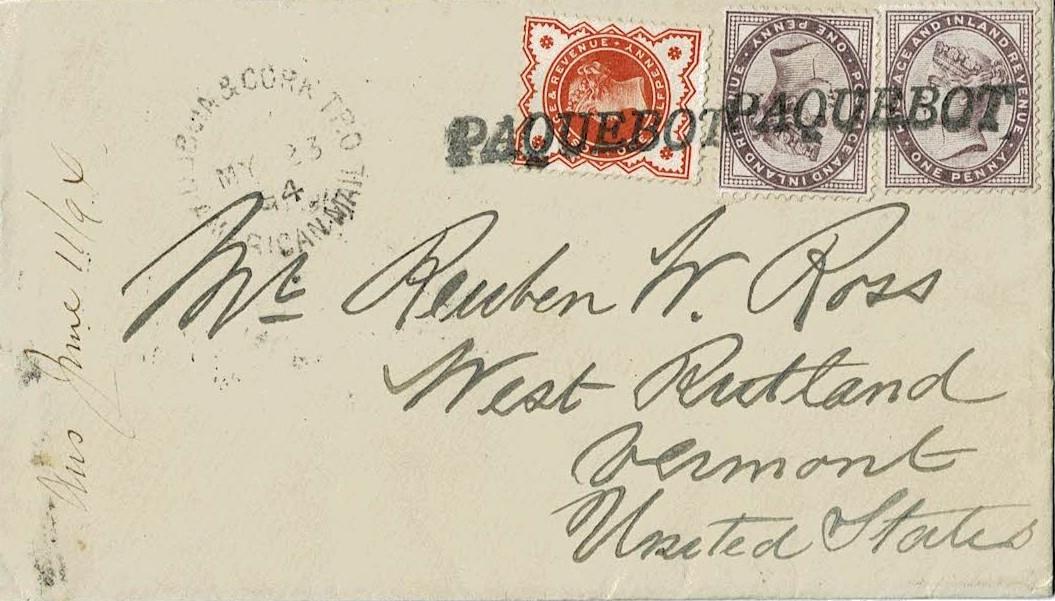 PAQUEBOT PAQUEBOT
POSTAGE & REVENUE · HALFPENNY
POSTAGE AND INLAND REVENUE · ONE PENNY ·
POSTAGE AND INLAND REVENUE · ONE PENNY ·
& CORK T.P.O
MY 23
94
AMERICAN MAIL
Mr. Reuben W. Ross
West Rutland
Vermont
United States
Ans June 11/94